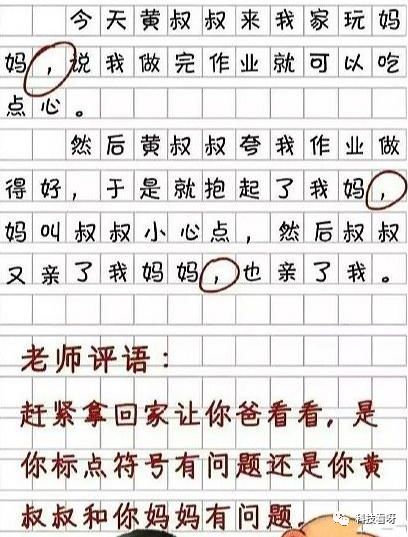 今天黄叔叔来我家玩妈
妈，说我做完作业就可以吃
点心。
然后黄叔叔夸我作业做
得好，于是就抱起了我妈，
妈叫叔叔小心点，然后叔叔
又亲了我妈妈，也亲了我。
老师评语：
赶紧拿回家让你爸看看，是
你标点符号有问题还是你黄
叔叔和你妈妈有问题。
科技看呀